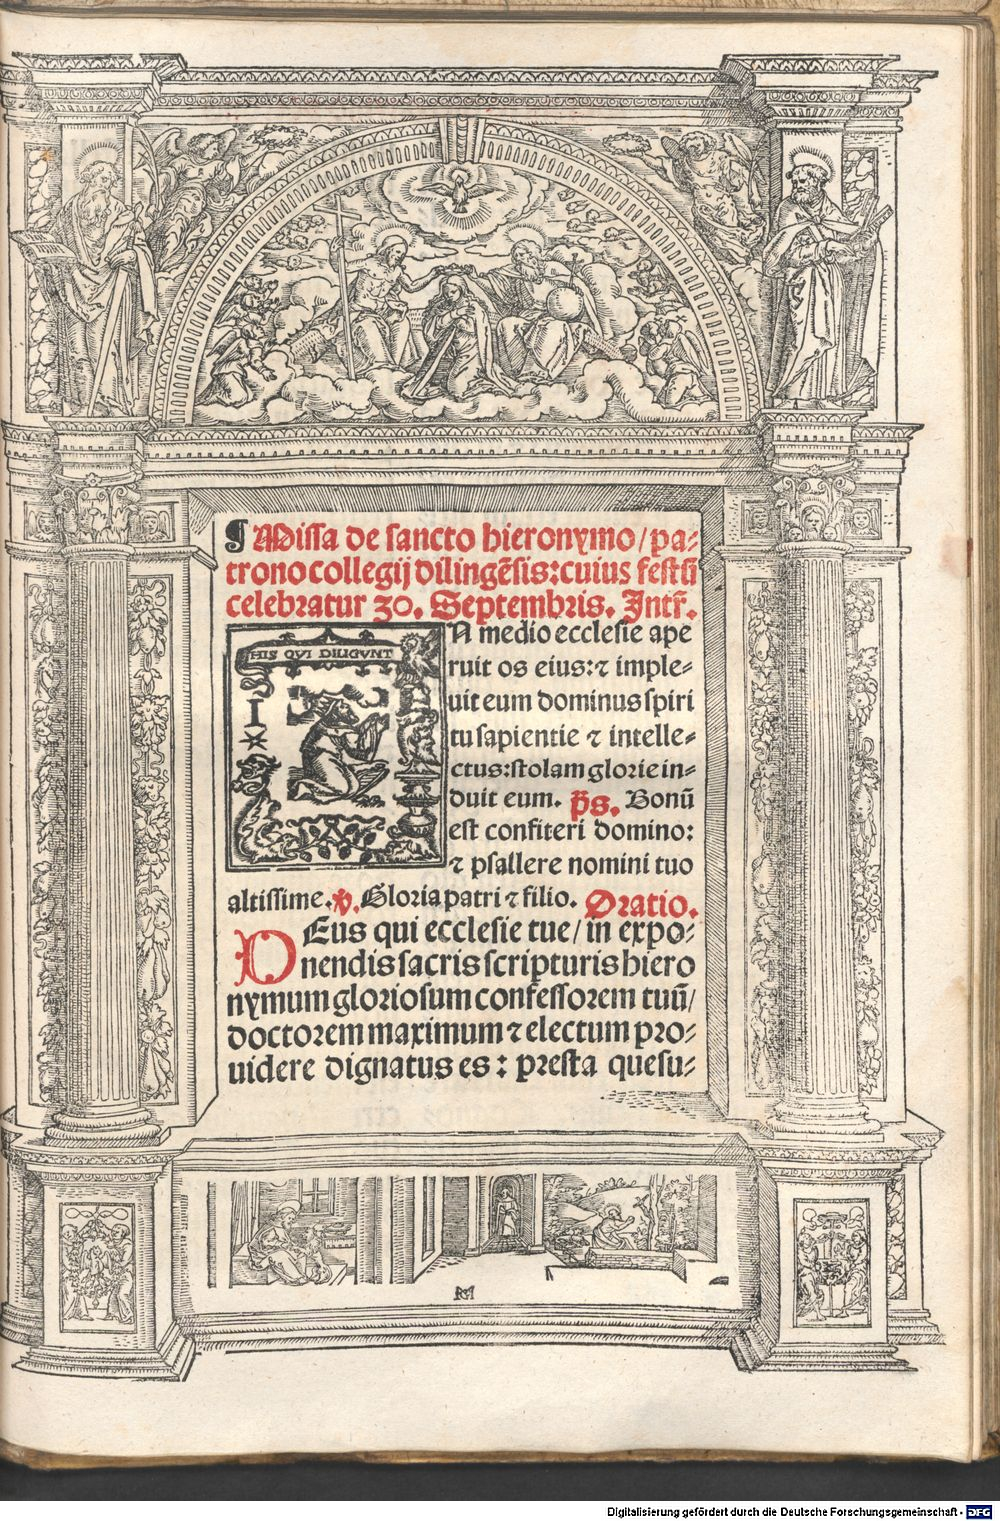 ¶ Missa de sancto hieronymo/pa⸗
trono collegij dilingēsis: cuius festū
celebratur 30. Septembris. Intr̄.
HIS QVI DILIGVNT
IN medio ecclesie ape
ruit os eius: ⁊ imple⸗
uit eum dominus spiri
tu sapientie ⁊ intelle⸗
ctus: stolam glorie in⸗
duit eum. p̄s. Bonū
est confiteri domino:
⁊ psallere nomini tuo
altissime. ℣. Gloria patri ⁊ filio. Oratio.
DEus qui ecclesie tue/ in expo⸗
nendis sacris scripturis hiero
nymum gloriosum confessorem tuū/
doctorem maximum ⁊ electum pro⸗
uidere dignatus es: presta quesu⸗
Digitalisierung gefördert durch die Deutsche Forschungsgemeinschaft - DFG